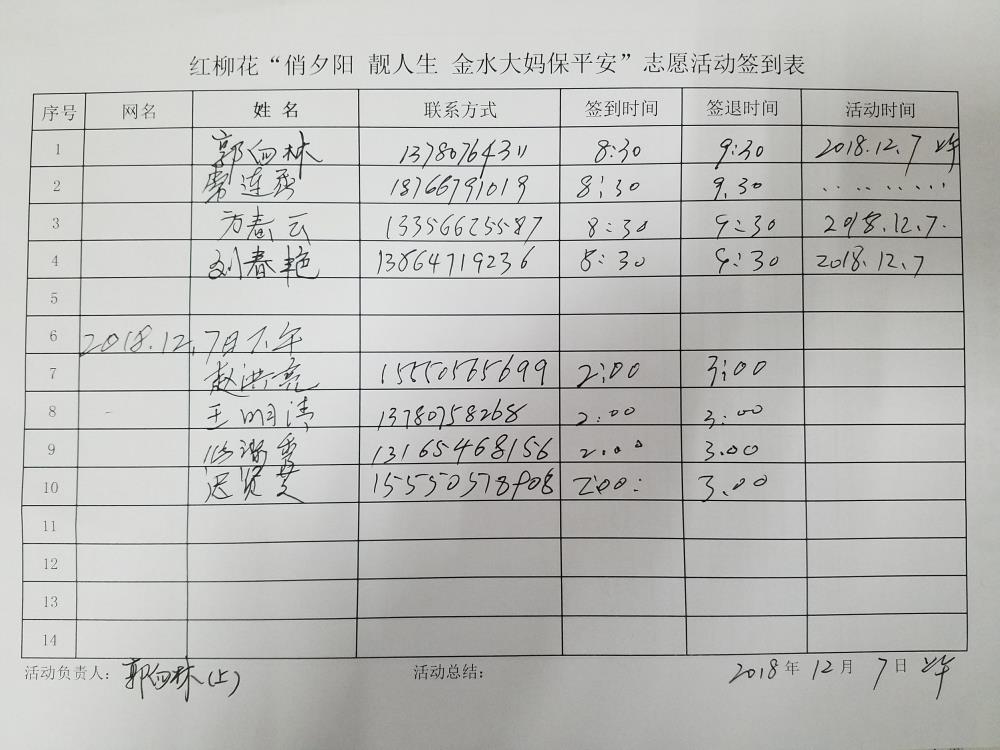 红柳花“俏夕阳 靓人生 金水大妈保平安”志愿活动签到表
序号 网名 姓名 联系方式 签到时间 签退时间 活动时间
1 郭向林 8:30 9:30 2018.12.7 上午
2 连 18766791019 8:30 9.30
3 方春云 13356625587 8:30 9:30 2018.12.7.
4 刘春艳 13864719236 8:30 9:30 2018.12.7
5
6 2018.12.7日下午
7 赵洪亮 15550565699 2:00 3:00
8 王明清 13780758268 2:00 3:00
9 13165468156 2.00 3.00
10 迟贤芝 2:00: 3.00
11
12
13
14
活动负责人: 郭向林(上) 活动总结: 2018年12月7日 上午